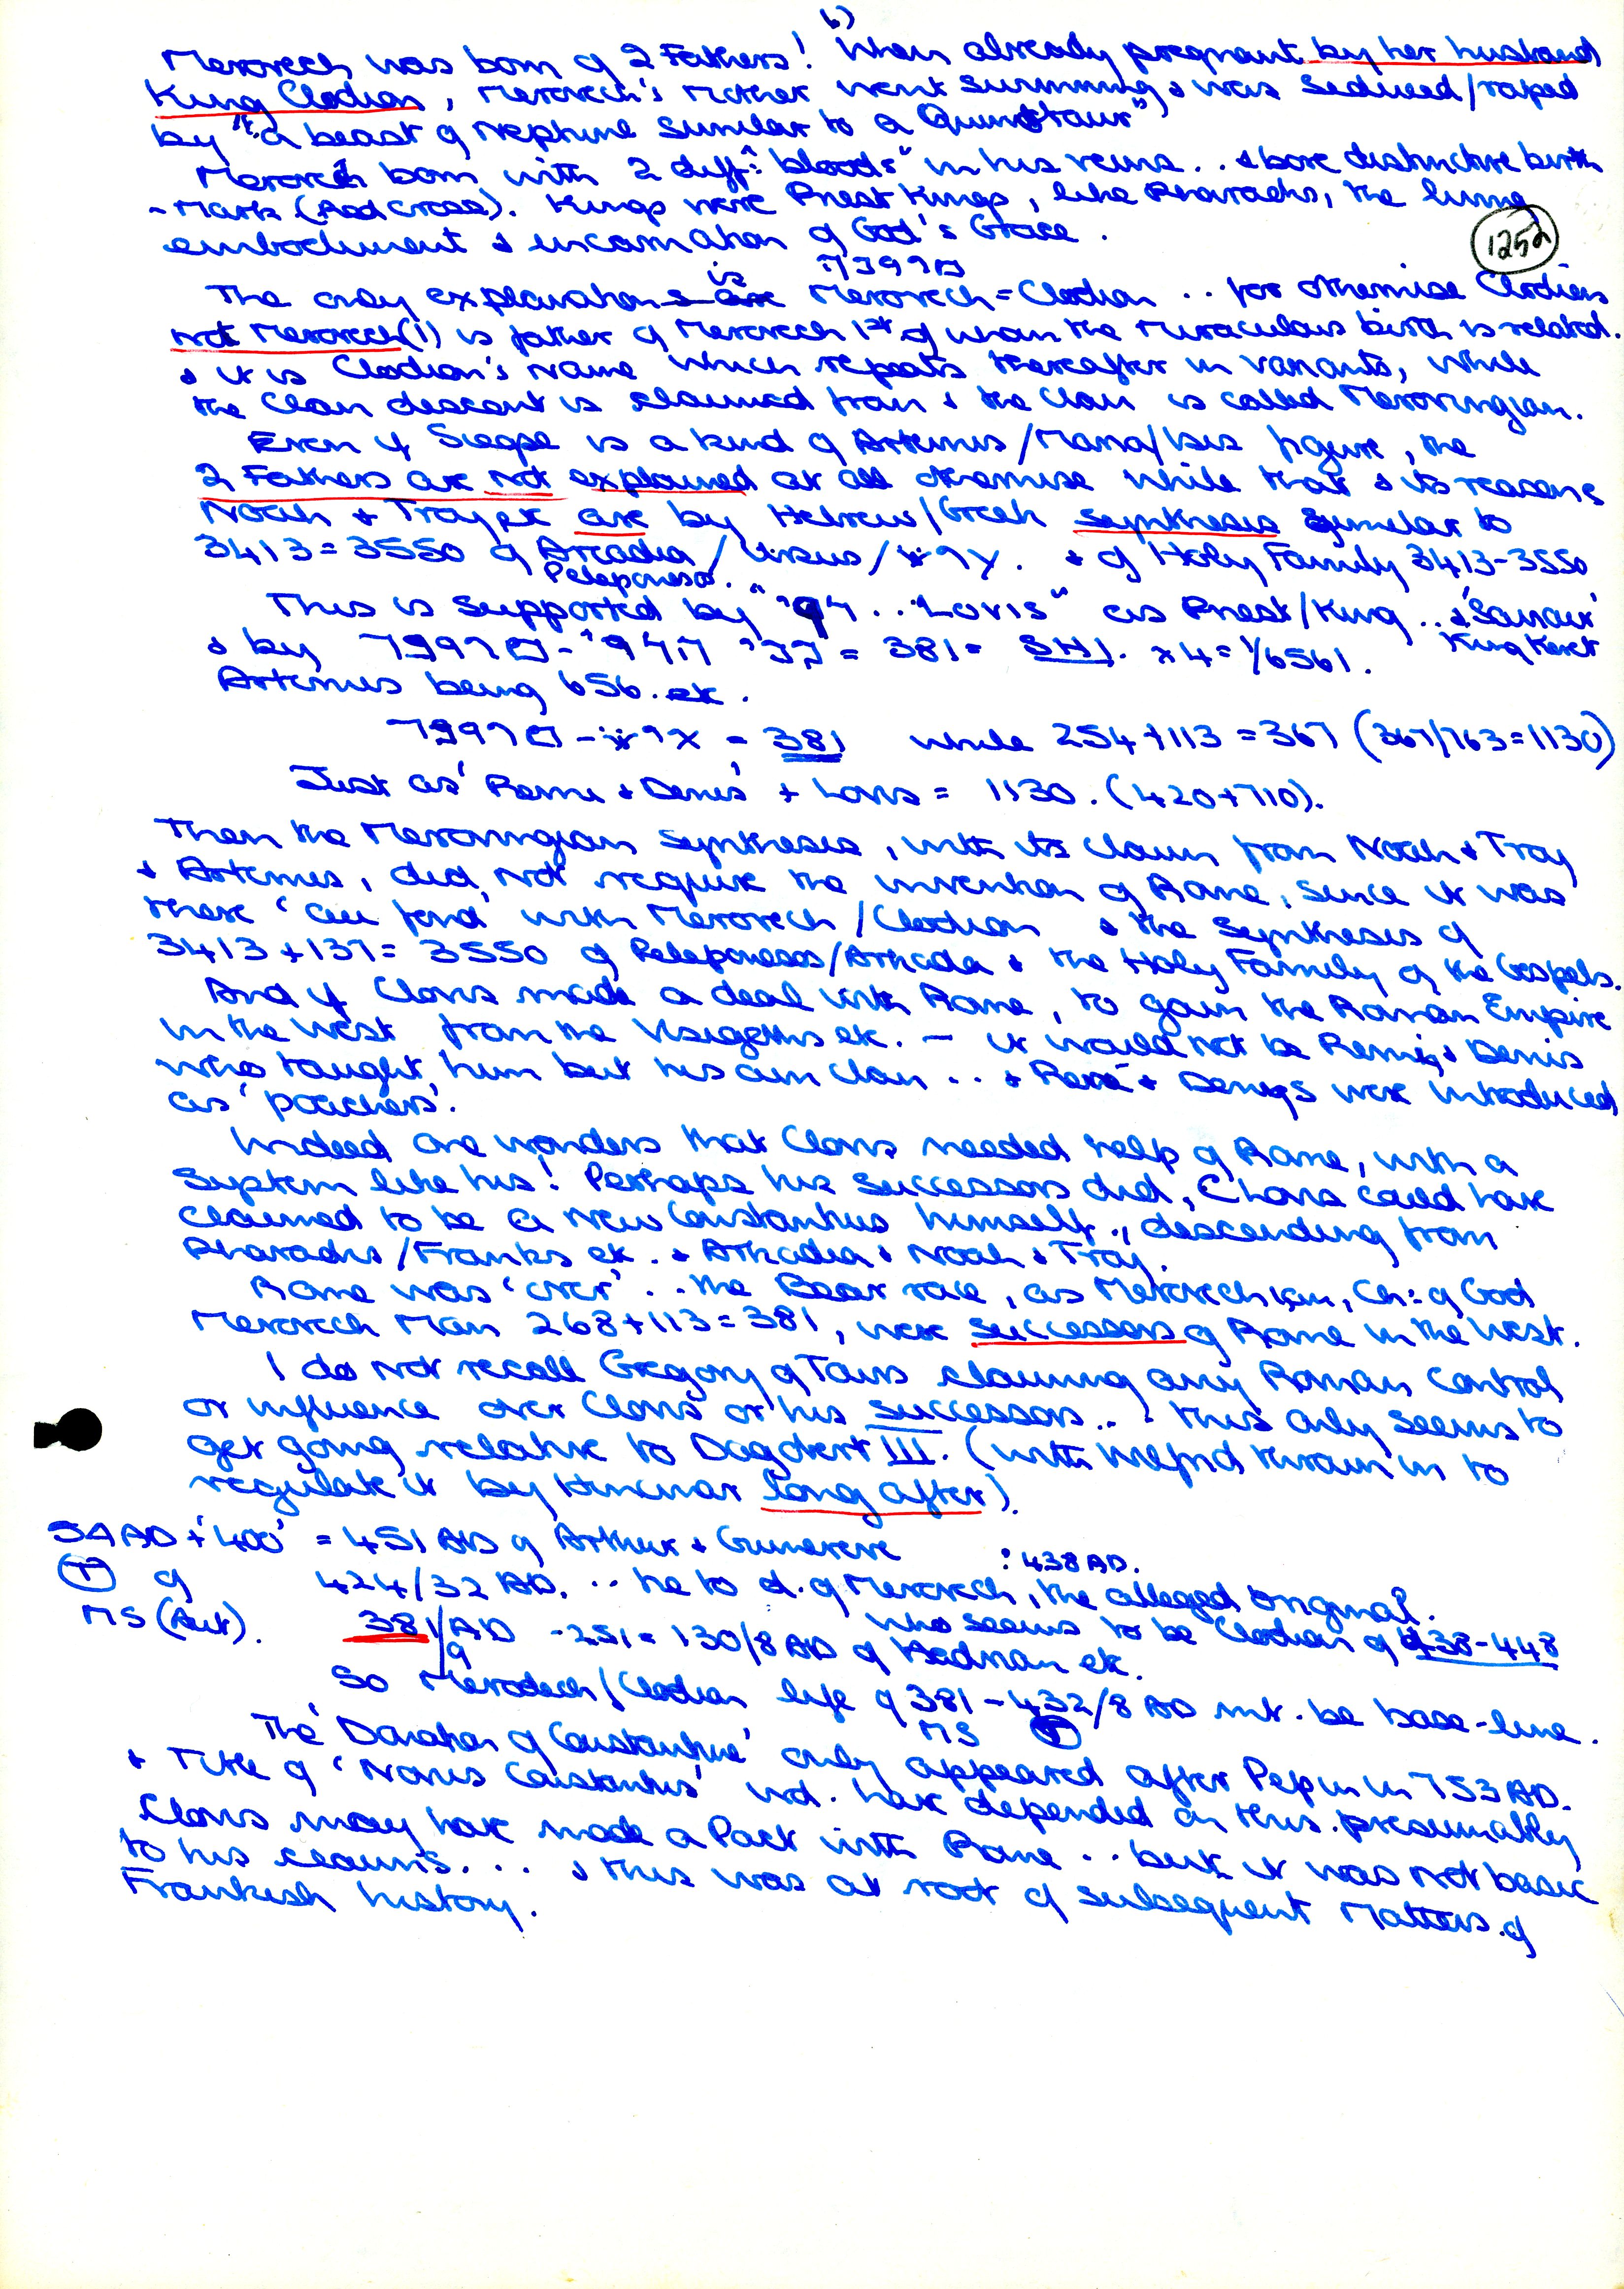 b)
Merovech was born of 2 Fathers! When already pregnant by her husband
King Clodion, Merovech's mother went swimming & was seduced/raped
by "a beast of Neptune similar to a Quinotaur"
Merovech born with 2 diff: "bloods" in his veins .. & bore distinctive birth
-mark (Red Cross). Kings were Priest Kings, like Pharaohs, the living
embodiment & incarnation of God's Grace.
1252
The only explanation is Merovech = Clodion .. for otherwise Clodion
not Merovech (1) is father of Merovech 1st of whom the miraculous birth is related.
& it is Clodion's name which repeats thereafter in variants, while
the clan descent is claimed from & the clan is called Merovingian.
Even if is a kind of Artemis/Mama/Isis figure, the
2 Fathers are not explained at all otherwise while that & its reasons
Noah & Troy etc are by Hebrew/Greek synthesis similar to
3413 = 3550 of Arcadia / Ursus / & of Holy Family 3413-3550
Peleponesos.
This is supported by .. "Lovis" as Priest/King ..
& by = 381 = x4 = 1/6561. King Keret
Artemis being 656. etc.
= 381 while 254+113 = 367 (367/763=1130)
Just as 'Remi & Denis' + Lovis = 1130. (420+710).
Then the Merovingian synthesis, with its claim from Noah & Troy
& Artemis, did not require the invention of Rome, since it was
there 'au fond' with Merovech / Clodion & the synthesis of
3413+137= 3550 of Peleponesos/Arkadia & the Holy Family of the Gospels.
And if Clovis made a deal with Rome, to gain the Roman Empire
in the West from the Visigoths etc. - it would not be Remi & Denis
who taught him but his own clan .. & & Denys were introduced
as 'poachers'.
Indeed one wonders that Clovis needed help of Rome, with a
system like his! Perhaps his successors did, Clovis could have
claimed to be a new Constantius himself., descending from
Pharaohs/Franks etc. & Arkadia & Noah & Troy.
Rome was 'over' .. the Bear race, as Merovech, Ch: of God
Merovech Man 268+113=381, were successors of Rome in the West.
I do not recall Gregory of Tours claiming any Roman control
or influence over Clovis or his successors..! this only seems to
get going relative to Dagobert III. (with Wilfrid thrown in to
regulate it by Hincmar long after).
AD + '400' = 451 AD of Arthur & Guinevere : 438 AD.
(T) of 424/32 AD. .. he to d. of Merovech, the alleged original.
MS (Aut). 381/9 AD - 251 = 130/8 AD of Hadrian etc. who seems to be Clodion of 438-448
So Merovech/Clodion life of 381 - 432/8 AD mt. be base-line.
MS (T)
The 'Donation of Constantine' only appeared after Pepin in 753 AD.
& Title of 'Novus Constantius' wd. have depended on this. presumably
Clovis may have made a Pact with Rome .. but it was not basic
to his claims... & this was at root of subsequent matters of
Frankish history.